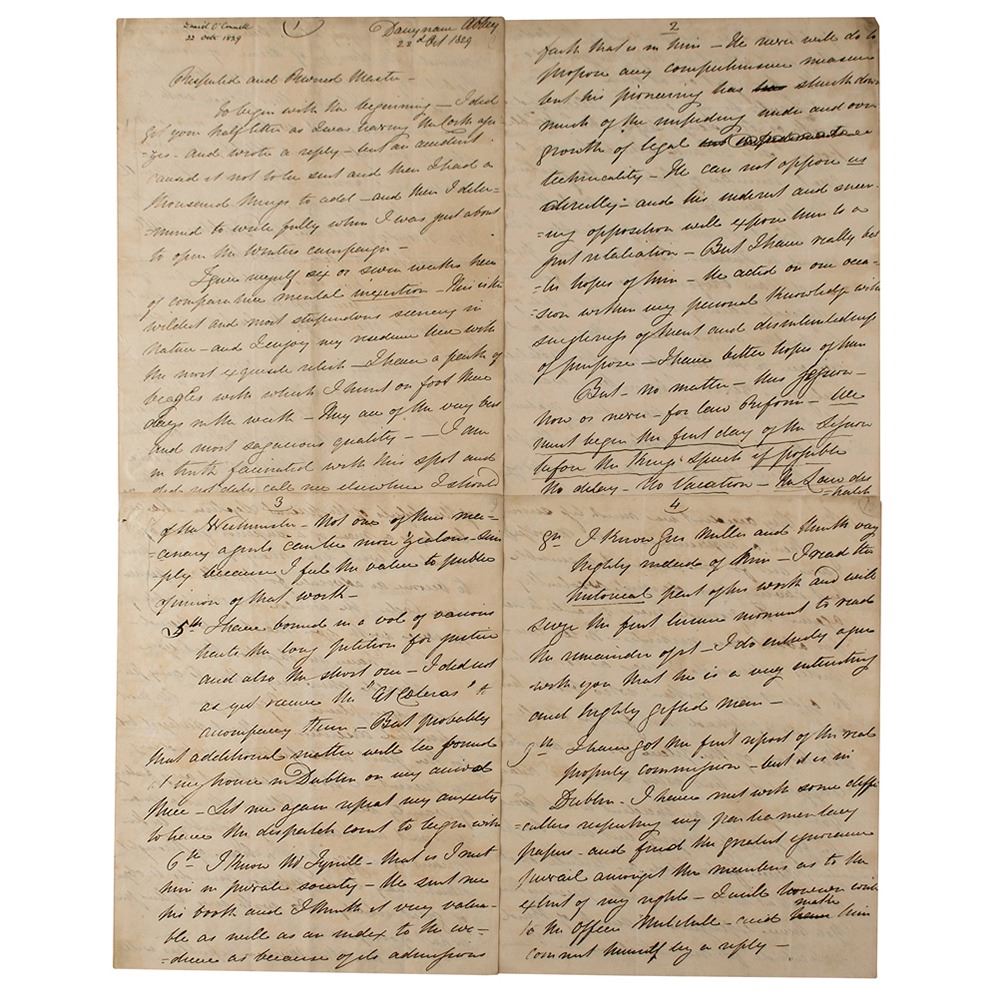 Daniel O'Connell
22 Octr 1829
(1)
Darrynane Abbey
22d Oct 1829
Respected and Revered Master -
To begin with the beginning - I did
get your half letter as I was leaving the Cork assi
=zes - and wrote a reply - but an accident
caused it not to be sent and then I had a
thousand things to add - and then I deter=
=mined to write fully when I was just about
to open the Winters campaign -
I give myself six or seven weeks here
of comparative mental inexertion - This is the
wildest and most stupendous scenery in
nature - and I enjoy my residence here with
the most exquisite relish - I have a pack of
beagles with which I hunt on foot three
days in the week - They are of the very best
and most sagacious quality - - I am
in truth fascinated with this spot and
did not duty call me elsewhere I should
2
faith that is in him - He never will do to
propose any comprehensive measure
but his pioneering has struck down
much of the impeding under and over
growth of legal
technicality - He can not oppose us
directly - and his indirect and sneer=
=ing opposition will expose him to a
just retaliation - But I have really bet
=ter hopes of him - He acted on one occa=
=sion within my personal knowledge with
singleness of heart and disinterestedness
of purpose - I have better hopes of him
But - no matter - this Session -
now or never - for law Reform - We
must begin the first day of the Session
before the King's speech if possible
No delay - No Vacation - The Law des
=patch
3
of the Westminster - Not one of their mer=
=cenary agents can be more zealous - sim
ply because I feel the value to public
opinion of that work -
5th I have bound in a vol of various
heads the long petition for justice
and also the short one - I did not
as yet receive the "Et Cæteras" to
accompany them - But probably
that additional matter will be found
at my house in Dublin on my arrival
there - Let me again repeat my anxiety
to have the dispatch court to begin with
6th I know Mr Tyrrell - that is I met
him in private society - He sent me
his book and I think it very valua=
ble as well as an index to the evi=
=dence as because of its admissions
4
8th I know Geo Miller and think very
highly indeed of him - I read the
historical part of his work and will
seize the first leisure moment to read
the remainder of it - I do entirely agree
with you that he is a very interesting
and highly gifted man -
9th I have got the first report of the real
property commission - but it is in
Dublin - I have met with some diffi
=culties respecting my parliamentary
papers - and find the greatest ignorance
prevail amongst the members as to the
extent of my rights - I will however write
to the officer Mitchell - and make him
commit himself by a reply -